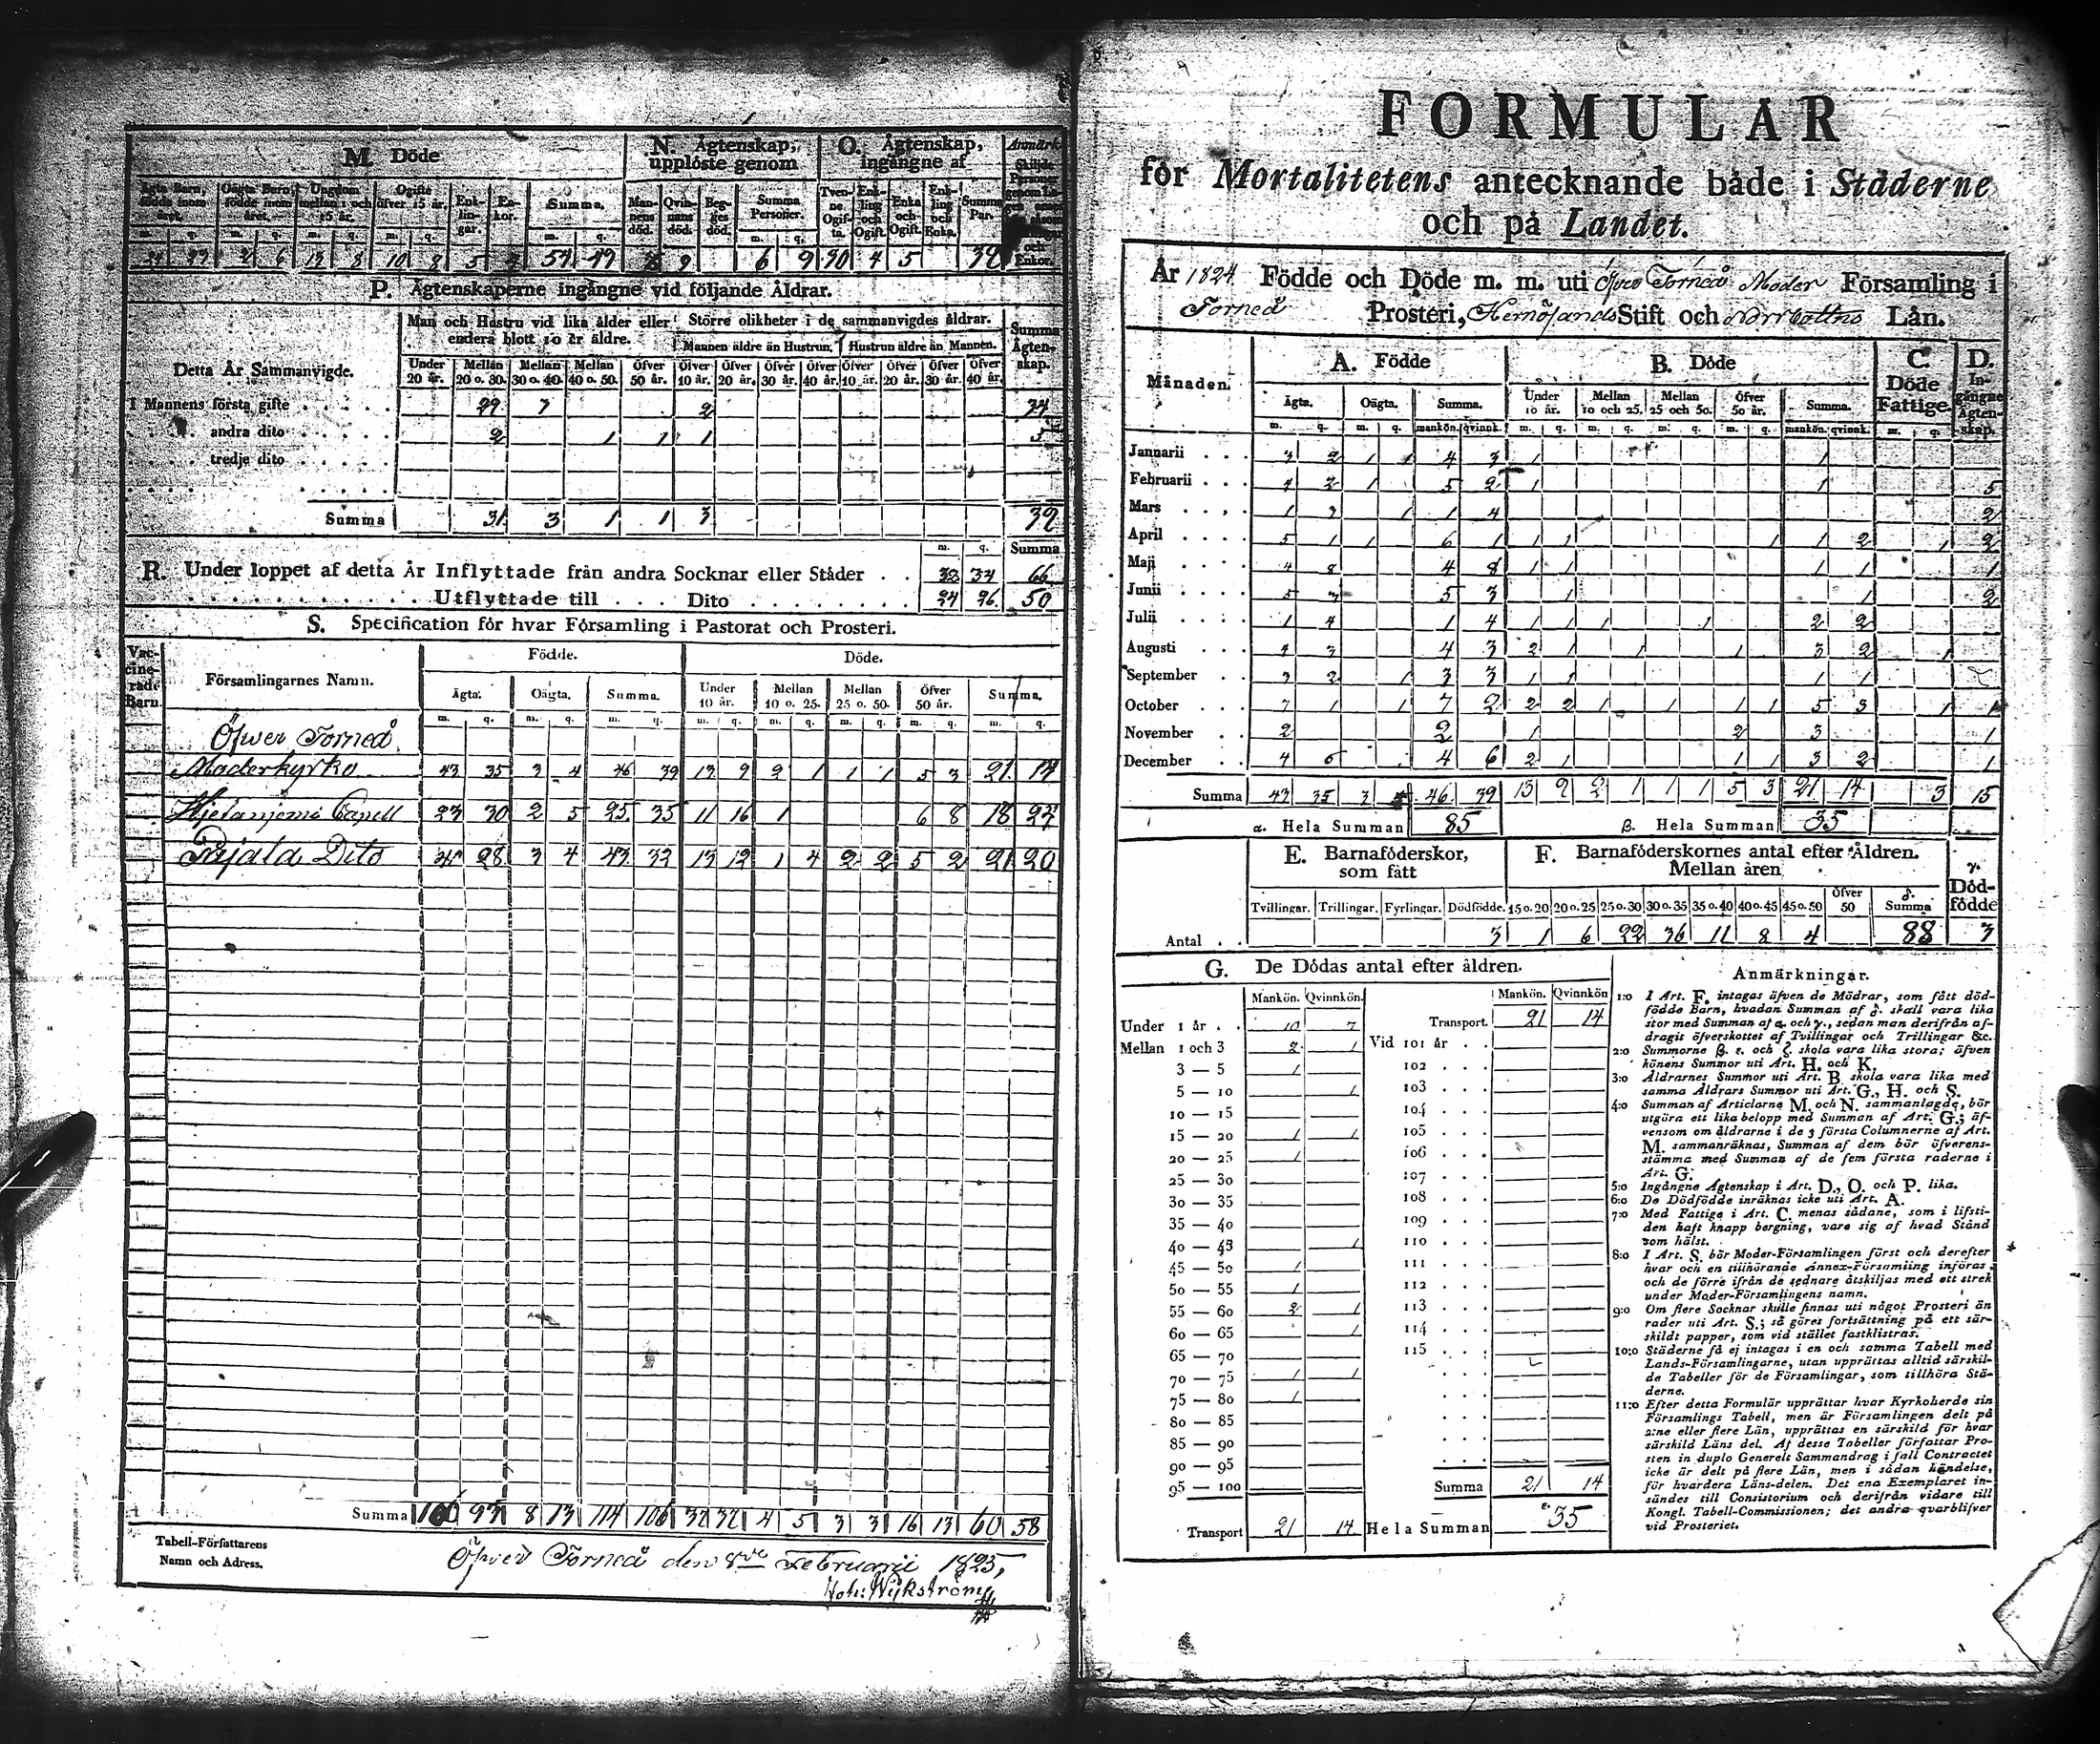 M. Döde
N. Ägtenskap, upplöste genom
O. Ägtenskap, ingångne af
Summa.
Summa Personer.
P. Ägtenskaperne ingångne vid följande Åldrar.
Man och Hustru vid lika ålder eller endera blott 10 år äldre.
Större olikheter i de sammanvigdes åldrar.
Mannen äldre än Hustrun.
Hustrun äldre än Mannen.
Summa Ägtenskap.
Detta År Sammanvigde.
Under 20 år. Mellan 20 o. 30. Mellan 30 o. 40. Mellan 40 o. 50. Öfver 50 år. Öfver 10 år. Öfver 20 år. Öfver 30 år. Öfver 40 år. Öfver 10 år. Öfver 20 år. Öfver 30 år. Öfver 40 år.
I Mannens första gifte 2
andra dito 2 1 1 1
tredje dito
Summa 31 3 1 1 3 39
m. q. Summa
R. Under loppet af detta År Inflyttade från andra Socknar eller Städer 32 34 66
Utflyttade till Dito 24 26 50
S. Specification för hvar Församling i Pastorat och Prosteri.
Vaccinerade Barn.
Församlingarnes Namn.
Födde. Döde.
Ägta. Oägta. Summa. Under 10 år. Mellan 10 o. 25. Mellan 25 o. 50. Öfver 50 år. Summa.
m. q. m. q. m. q. m. q. m. q. m. q. m. q. m. q.
Öfver Torneå
Moderkyrko 43 35 3 4 46 39 13 9 2 1 1 1 5 3 21 14
Hjetaniemi Capell 23 30 2 5 25 35 11 16 1 6 8 18 24
Pajala Dito 28 3 4 43 32 13 12 1 4 2 2 5 2 21 20
Summa 106 93 8 13 114 106 37 37 4 5 3 3 16 13 60 58
Tabell-Författarens Namn och Adress.
Öfver Torneå den 8de Februarii 1825,
Joh: Wijkström
FORMULAR
för Mortalitetens antecknande både i Städerne
och på Landet.
År 1824 Födde och Döde m. m. uti Öfver Torneå Moder Församling i
Torneå Prosteri, Hernösands Stift och Norrbottns Län.
Månaden.
A. Födde
B. Döde
C. Döde Fattige.
D. Ingångne Ägtenskap.
Ägta. Oägta. Summa. Under 10 år. Mellan 10 och 25. Mellan 25 och 50. Öfver 50 år. Summa.
m. q. m. q. mankön. qvinnk. m. q. m. q. m. q. m. q. mankön. qvinnk. m. q.
Januarii 3 2 1 1 4 3 1 1
Februarii 4 2 1 5 2 1 1 5
Mars 1 3 1 1 4 2
April 5 1 1 6 1 1 1 1 1 2 1 2
Maji 4 8 4 8 1 1 1 1 1
Junii 5 3 5 3 1 1 2
Julii 1 4 1 4 1 1 1 1 2 2
Augusti 4 3 4 3 2 1 1 1 3 2 1
September 3 2 1 3 3 1 1 1 1
October 7 1 1 7 2 2 2 1 1 1 1 5 3 1 1
November 2 2 1 2 3 1
December 4 6 4 6 2 1 1 1 3 2 1
Summa 43 35 3 4 46 39 13 9 2 1 1 1 5 3 21 14 3 15
α. Hela Summan 85 β. Hela Summan 35
E. Barnaföderskor, som fått
F. Barnaföderskornes antal efter Åldren. Mellan åren
γ. Dödfödde
Tvillingar. Trillingar. Fyrlingar. Dödfödde. 15 o. 20 20 o. 25 25 o. 30 30 o. 35 35 o. 40 40 o. 45 45 o. 50 Öfver 50 δ. Summa
Antal 3 1 6 22 36 11 8 4 88 3
G. De Dödas antal efter åldren.
Mankön. Qvinnkön. Mankön. Qvinnkön
Under 1 år 10 7 Transport. 21 14
Mellan 1 och 3 2 1 Vid 101 år
3 — 5 1 102
5 — 10 1 103
10 — 15 104
15 — 20 1 1 105
20 — 25 1 106
25 — 30 107
30 — 35 108
35 — 40 109
40 — 45 1 110
45 — 50 1 111
50 — 55 1 112
55 — 60 2 1 113
60 — 65 1 114
65 — 70 115
70 — 75 1 1
75 — 80 1
80 — 85
85 — 90
90 — 95
95 — 100 Summa 21 14
Transport 21 14 Hela Summan ε. 35
Anmärkningar.
1:o I Art. F. intagas äfven de Mödrar, som fått död-
födde Barn, hvadan Summan af δ. skall vara lika
stor med Summan af α. och γ., sedan man derifrån af-
dragit öfverskottet af Tvillingar och Trillingar &c.
2:o Summorne β. ε. och ζ. skola vara lika stora; äfven
könens Summor uti Art. H. och K.
3:o Åldrarnes Summor uti Art. B. skola vara lika med
samma Åldrars Summor uti Art. G., H. och S.
4:o Summan af Articlarne M. och N. sammanlagde, bör
utgöra ett lika belopp med Summan af Art. G.; äf-
vensom om åldrarne i de 3 första Columnerne af Art.
M. sammanräknas, Summan af dem bör öfverens-
stämma med Summan af de fem första raderne i
Art. G.
5:o Ingångne Ägtenskap i Art. D., O. och P. lika.
6:o De Dödfödde inräknas icke uti Art. A.
7:o Med Fattige i Art. C. menas sådane, som i lifsti-
den haft knapp bergning, vare sig af hvad Stånd
som hälst.
8:o I Art. S. bör Moder-Församlingen först och derefter
hvar och en tillhörande Annex-Församling införas,
och de förre ifrån de sednare åtskiljas med ett strek
under Moder-Församlingens namn.
9:o Om flere Socknar skulle finnas uti något Prosteri än
rader uti Art. S.; så göres fortsättning på ett sär-
skildt papper, som vid stället fastklistras.
10:o Städerne få ej intagas i en och samma Tabell med
Lands-Församlingarne, utan upprättas alltid särskil-
de Tabeller för de Församlingar, som tillhöra Stä-
derne.
11:o Efter detta Formulär upprättar hvar Kyrkoherde sin
Församlings Tabell, men är Församlingen delt på
2:ne eller flere Län, upprättas en särskild för hvar
särskild Läns del. Af desse Tabeller författar Pro-
sten in duplo Generelt Sammandrag i fall Contractet
icke är delt på flere Län, men i sådan händelse,
för hvardera Läns-delen. Det ena Exemplaret in-
sändes till Consistorium och derifrån vidare till
Kongl. Tabell-Commissionen; det andra qvarblifver
vid Prosteriet.